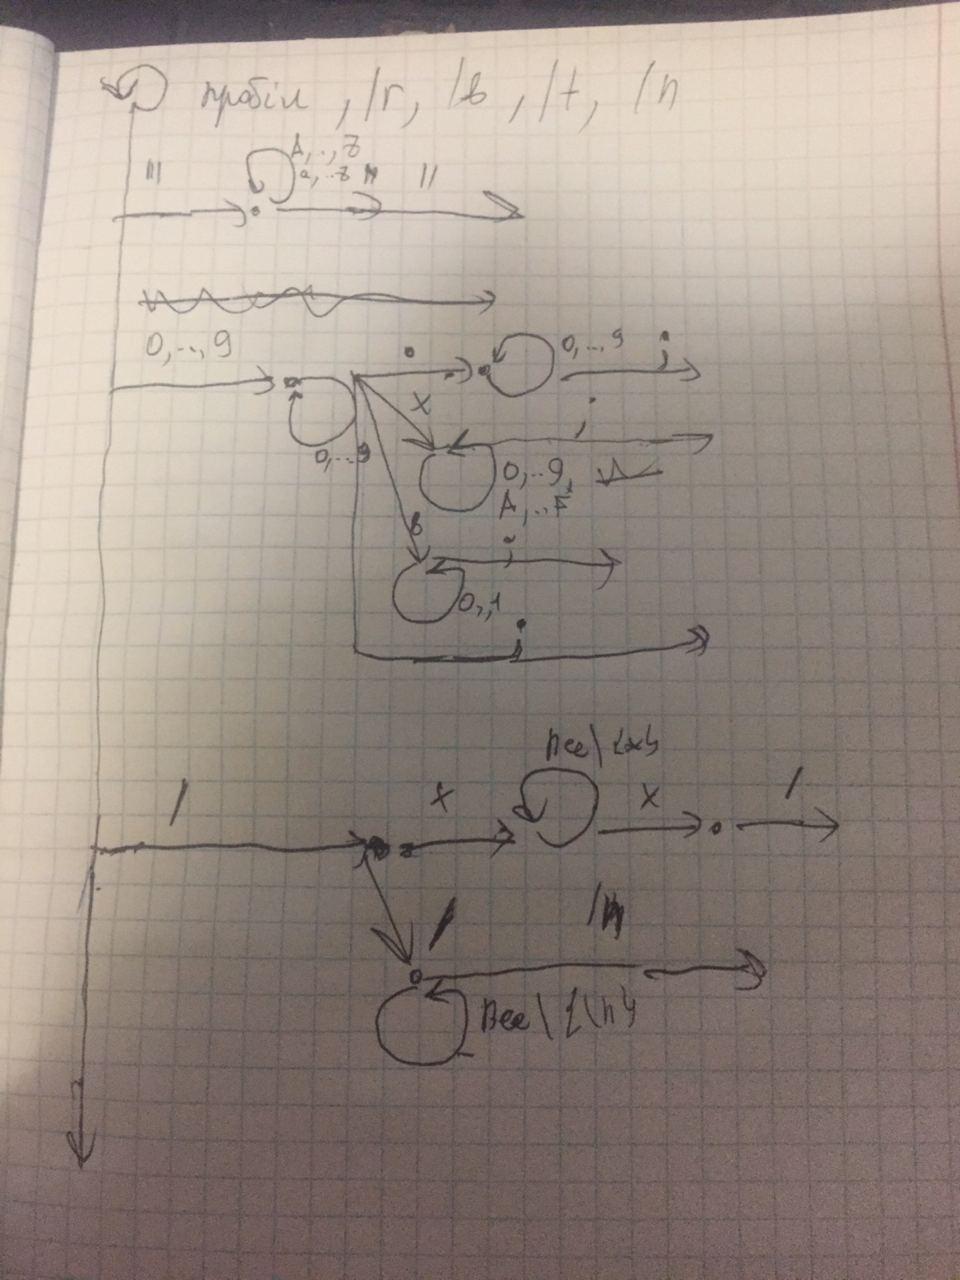 пробіл , /r, /b , /t, /n
A,..,Z
a,..z
" "
0,..,9 . 0,..,9 ;
x ;
0,..9
0,..9,
A,..F
b ;
0,,1
;
Все\{x}
/ x x /
/ /n
Все\{\n}